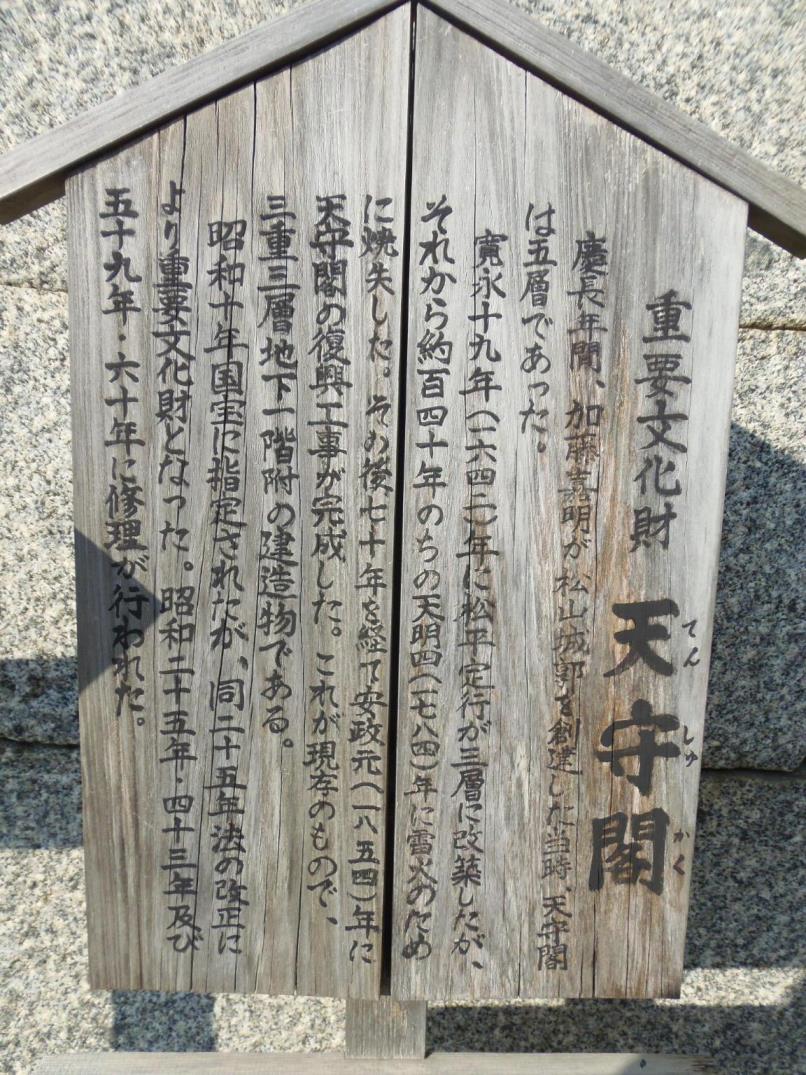 重要文化財 天守閣
てんしゅかく
慶長年間、加藤嘉明が松山城郭を創建した当時、天守閣
は五層であった。
寛永十九年(一六四二)年に松平定行が三層に改築したが、
それから約百四十年のちの天明四(一七八四)年に雷火のため
に焼失した。その後七十年を経て安政元(一八五四)年に
天守閣の復興工事が完成した。これが現存のもので、
三重三層地下一階附の建造物である。
昭和十年国宝に指定されたが、同二十五年法の改正に
より重要文化財となった。昭和二十五年・四十三年及び
五十九年・六十年に修理が行われた。